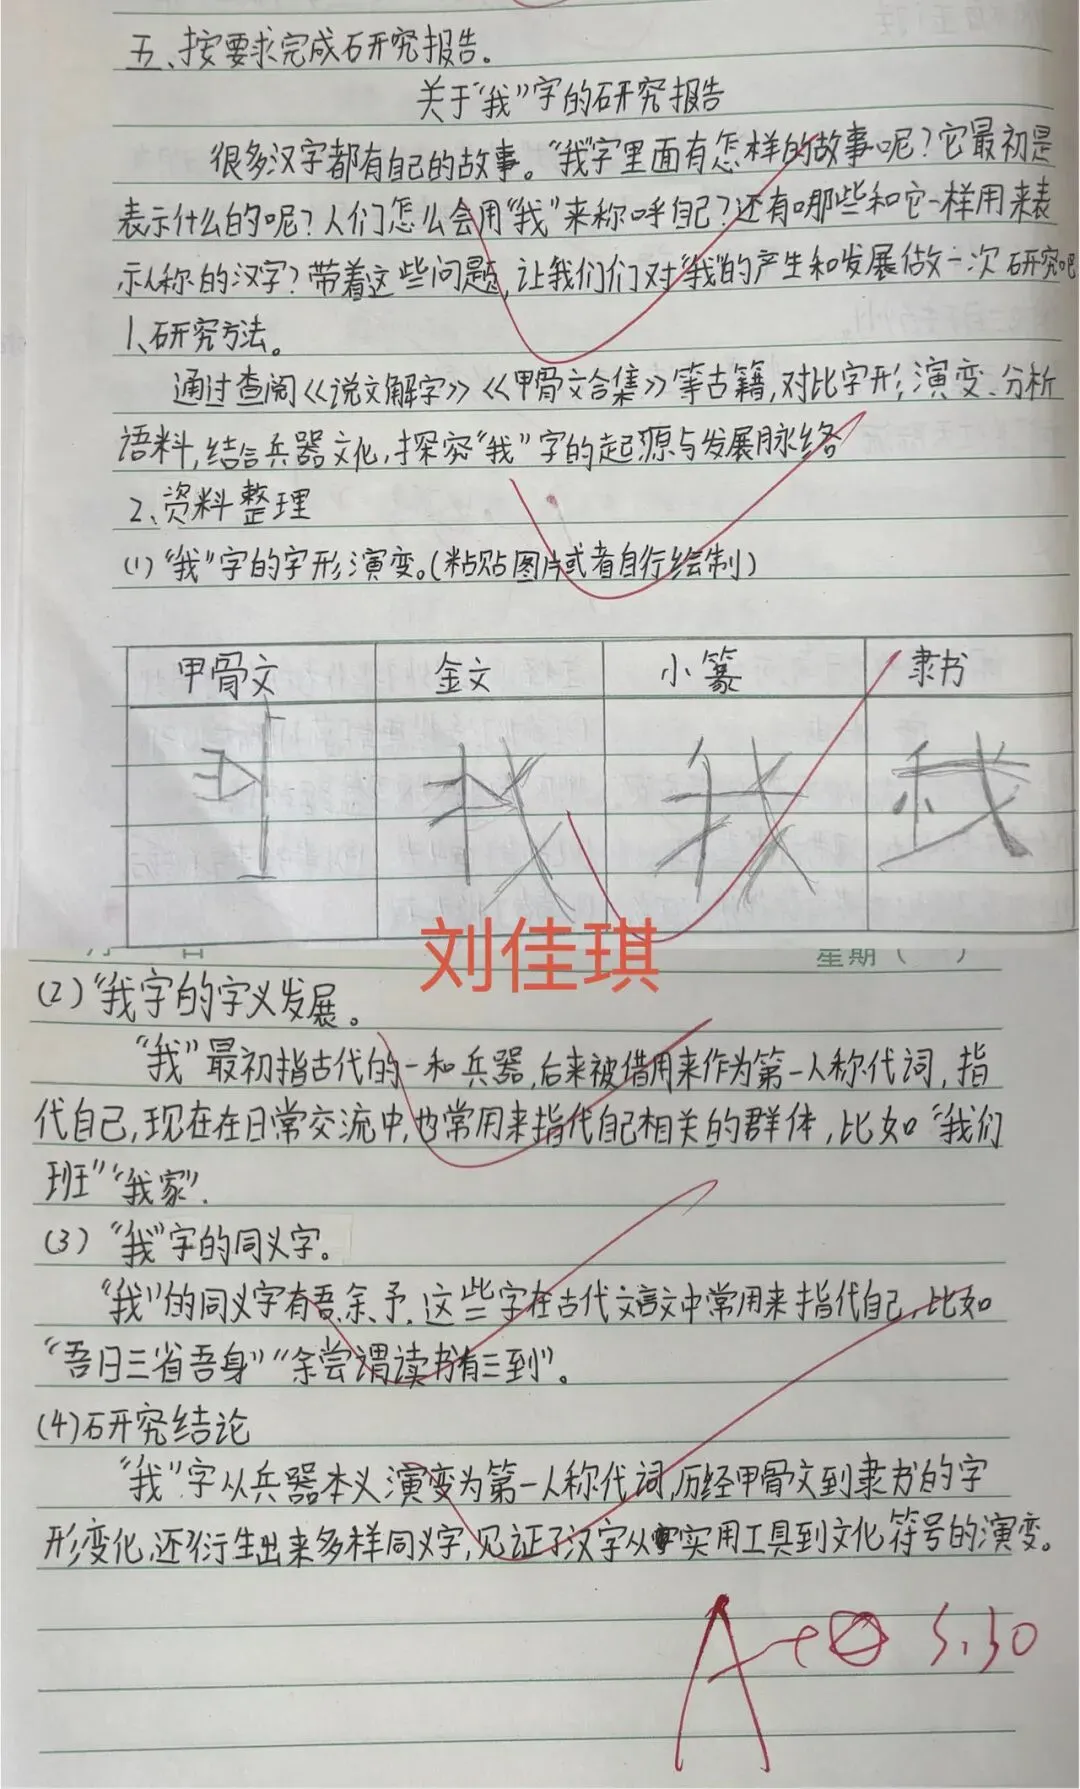 五、按要求完成研究报告。
关于“我”字的研究报告
很多汉字都有自己的故事。“我”字里面有怎样的故事呢？它最初是
表示什么的呢？人们怎么会用“我”来称呼自己？还有哪些和它一样用来表
示人称的汉字？带着这些问题，让我们们对“我”的产生和发展做一次研究吧
1、研究方法。
通过查阅《说文解字》《甲骨文合集》等古籍，对比字形，演变、分析
语料，结合兵器文化，探究“我”字的起源与发展脉络
2、资料整理
(1)“我”字的字形演变。(粘贴图片或者自行绘制)
甲骨文 金文 小篆 隶书
我 我 我
刘佳琪
星期（ ）
(2)“我字的字义发展。
“我”最初指古代的一种兵器，后来被借用来作为第一人称代词，指
代自己，现在在日常交流中，也常用来指代自己相关的群体，比如“我们
班”“我家”.
(3)“我”字的同义字。
“我”的同义字有吾、余、予，这些字在古代文言文中常用来指代自己，比如
“吾日三省吾身”“余尝谓读书有三到”。
(4)研究结论
“我”字从兵器本义演变为第一人称代词，历经甲骨文到隶书的字
形变化，还衍生出来多样同义字，见证了汉字从实用工具到文化符号的演变。
A+ 5.30